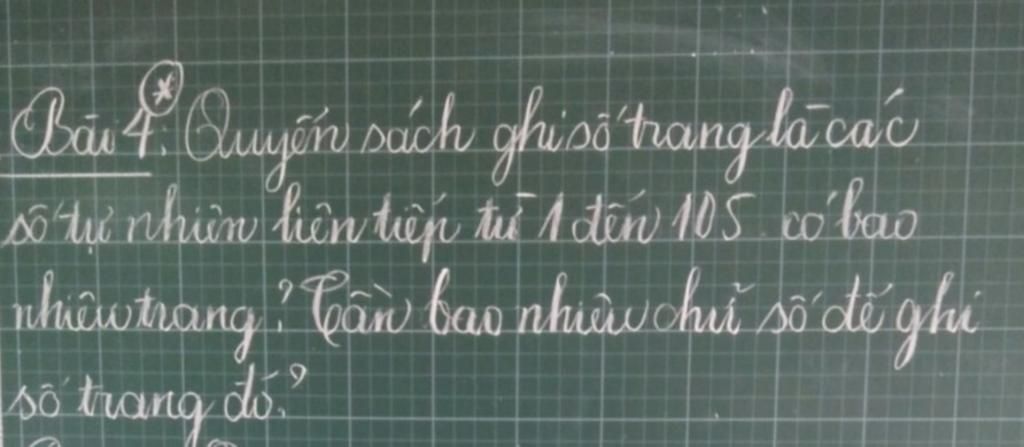 Bài 4*: Quyển sách ghi số trang là các
số tự nhiên liên tiếp từ 1 đến 105 có bao
nhiêu trang? Cần bao nhiêu chữ số để ghi
số trang đó?